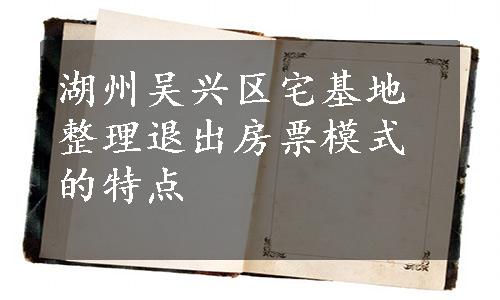 湖州吴兴区宅基地
整理退出房票模式
的特点